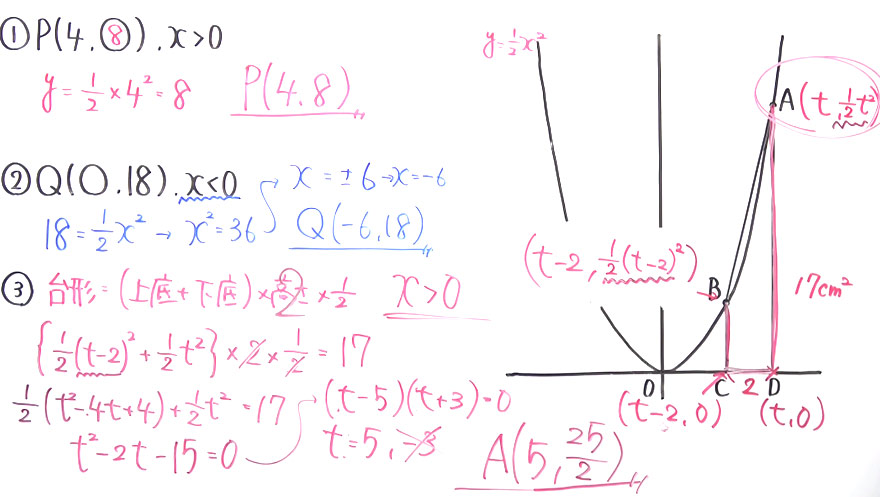 ① P(4, ⑧), x>0
y = 1/2 × 4² = 8 P(4, 8)
② Q(○, 18), x<0
18 = 1/2 x² → x² = 36 → x = ±6 → x = -6
Q(-6, 18)
③ 台形 = (上底 + 下底) × 高さ × 1/2 x>0
2
{1/2 (t-2)² + 1/2 t²} × 2 × 1/2 = 17
1/2 (t² - 4t + 4) + 1/2 t² = 17
t² - 2t - 15 = 0 → (t-5)(t+3) = 0
t = 5, -3
A(5, 25/2)
y = 1/2 x²
A(t, 1/2 t²
(t-2, 1/2 (t-2)²)
B
17cm²
O C 2 D
(t-2, 0) (t, 0)